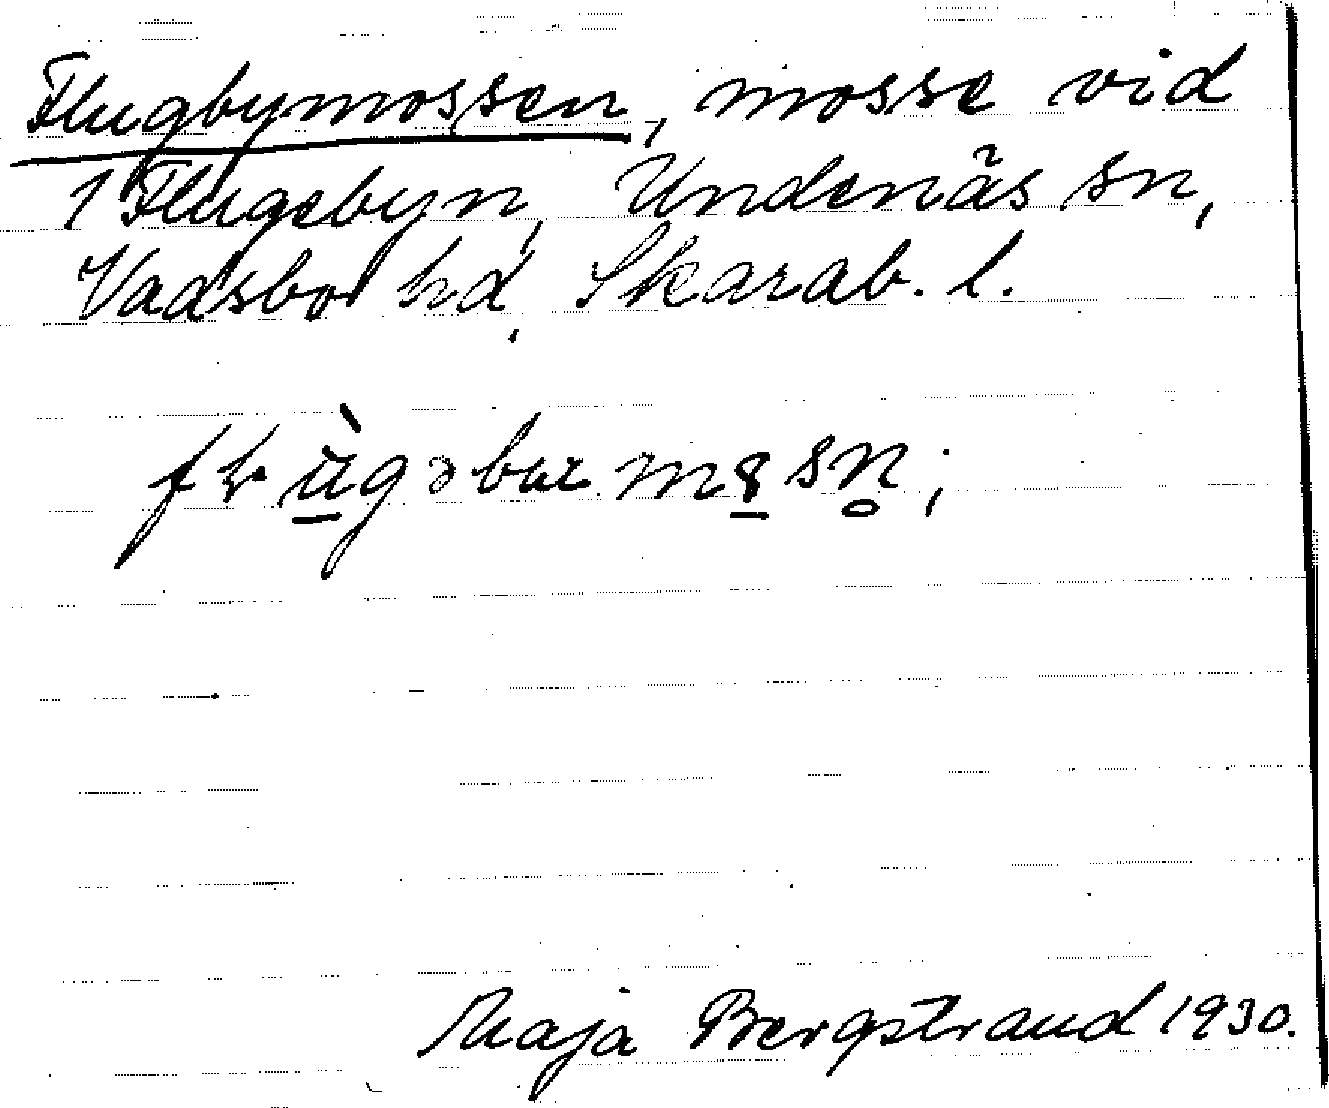 Flugbymossen, mosse vid
1 Flugebyn, Undenäs sn,
Vadsbo hd, Skarab. l.
Maja Bergstrand 1930.